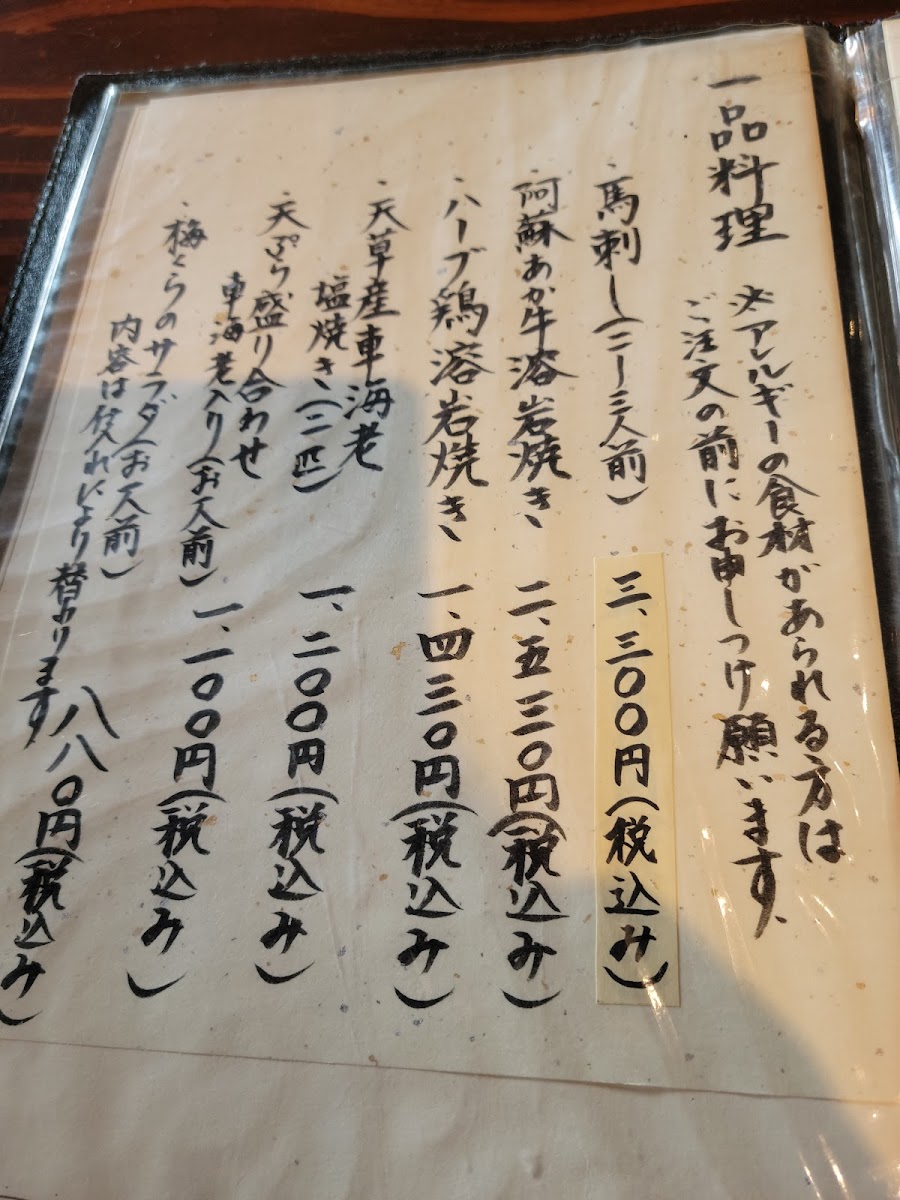 一品料理
※アレルギーの食材があられる方は
ご注文の前にお申しつけ願います。
・馬刺し(二~三人前) 三、三〇〇円(税込み)
・阿蘇あか牛溶岩焼き 二、五三〇円(税込み)
・ハーブ鶏溶岩焼き 一、四三〇円(税込み)
・天草産車海老
塩焼き(二匹) 一、二〇〇円(税込み)
・天ぷら盛り合わせ
車海老入り(お一人前) 一、一〇〇円(税込み)
・梅くらのサラダ(お一人前) 八八〇円(税込み)
内容は仕入れにより替わります